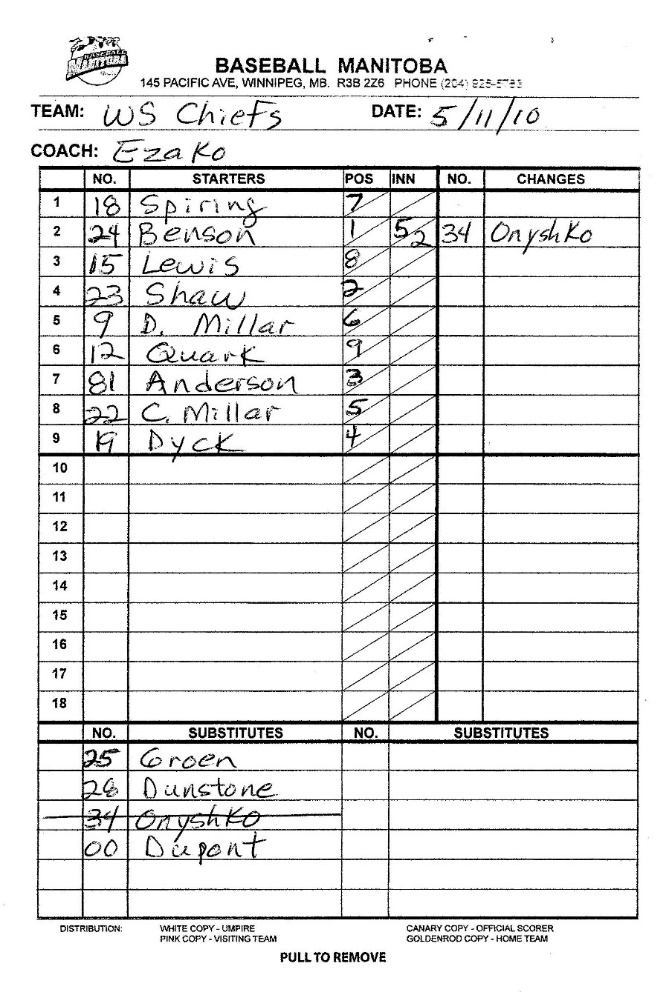 BASEBALL MANITOBA
BASEBALL MANITOBA
145 PACIFIC AVE, WINNIPEG, MB. R3B 2Z6 PHONE (204) 925-5763
TEAM: WS Chiefs DATE: 5/11/10
COACH: Ezako
NO. STARTERS POS INN NO. CHANGES
1 18 Spiring 7
2 24 Benson 1 5 2 34 Onyshko
3 15 Lewis 8
4 23 Shaw 2
5 9 D. Millar 6
6 12 Quark 9
7 81 Anderson 3
8 22 C. Millar 5
9 19 Dyck 4
10
11
12
13
14
15
16
17
18
NO. SUBSTITUTES NO. SUBSTITUTES
25 Groen
28 Dunstone
34 Onyshko
00 Dupont
DISTRIBUTION: WHITE COPY - UMPIRE CANARY COPY - OFFICIAL SCORER
PINK COPY - VISITING TEAM GOLDENROD COPY - HOME TEAM
PULL TO REMOVE